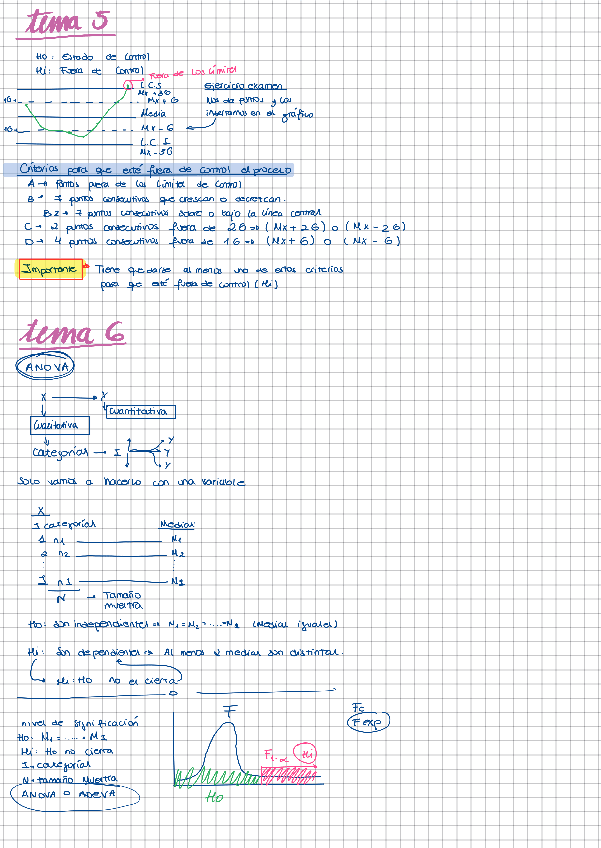 tema 5
H0: Estado de Control
H1: Fuera de Control
Fuera de los límites
L.C.S
Mx+3σ
1σ
Mx+σ
Media
1σ
Mx-σ
L.C.I
Mx-3σ
Ejercicio examen
Nos da puntos y los
insertamos en el gráfico
Criterios para que esté fuera de control el proceso
A → Puntos fuera de los límites de control
B → 7 puntos consecutivos que crezcan o decrezcan.
B2 → 7 puntos consecutivos sobre o bajo la línea central
C → 2 puntos consecutivos fuera de 2σ => (Mx+2σ) o (Mx-2σ)
D → 4 puntos consecutivos fuera de 1σ => (Mx+σ) o (Mx-σ)
Importante → Tiene que darse al menos uno de estos criterios
para que esté fuera de control (H1)
tema 6
ANOVA
X → Y
Cuantitativa
Cualitativa
Categorías → I
Y
Y
Y
Solo vamos a hacerlo con una variable
X
I categorías Medias
1 n1 M1
2 n2 M2
I nI MI
N → Tamaño
muestra
H0: Son independientes => M1=M2=....=MI (Medias iguales)
H1: Son dependientes => Al menos 2 medias son distintas.
H1: H0 no es cierta
nivel de significación
H0: M1=.....MI
H1: H0 no cierta
I = categorías
N = tamaño muestra
ANOVA o ADEVA
F
F1-α
H1
H0
Fc
Fexp